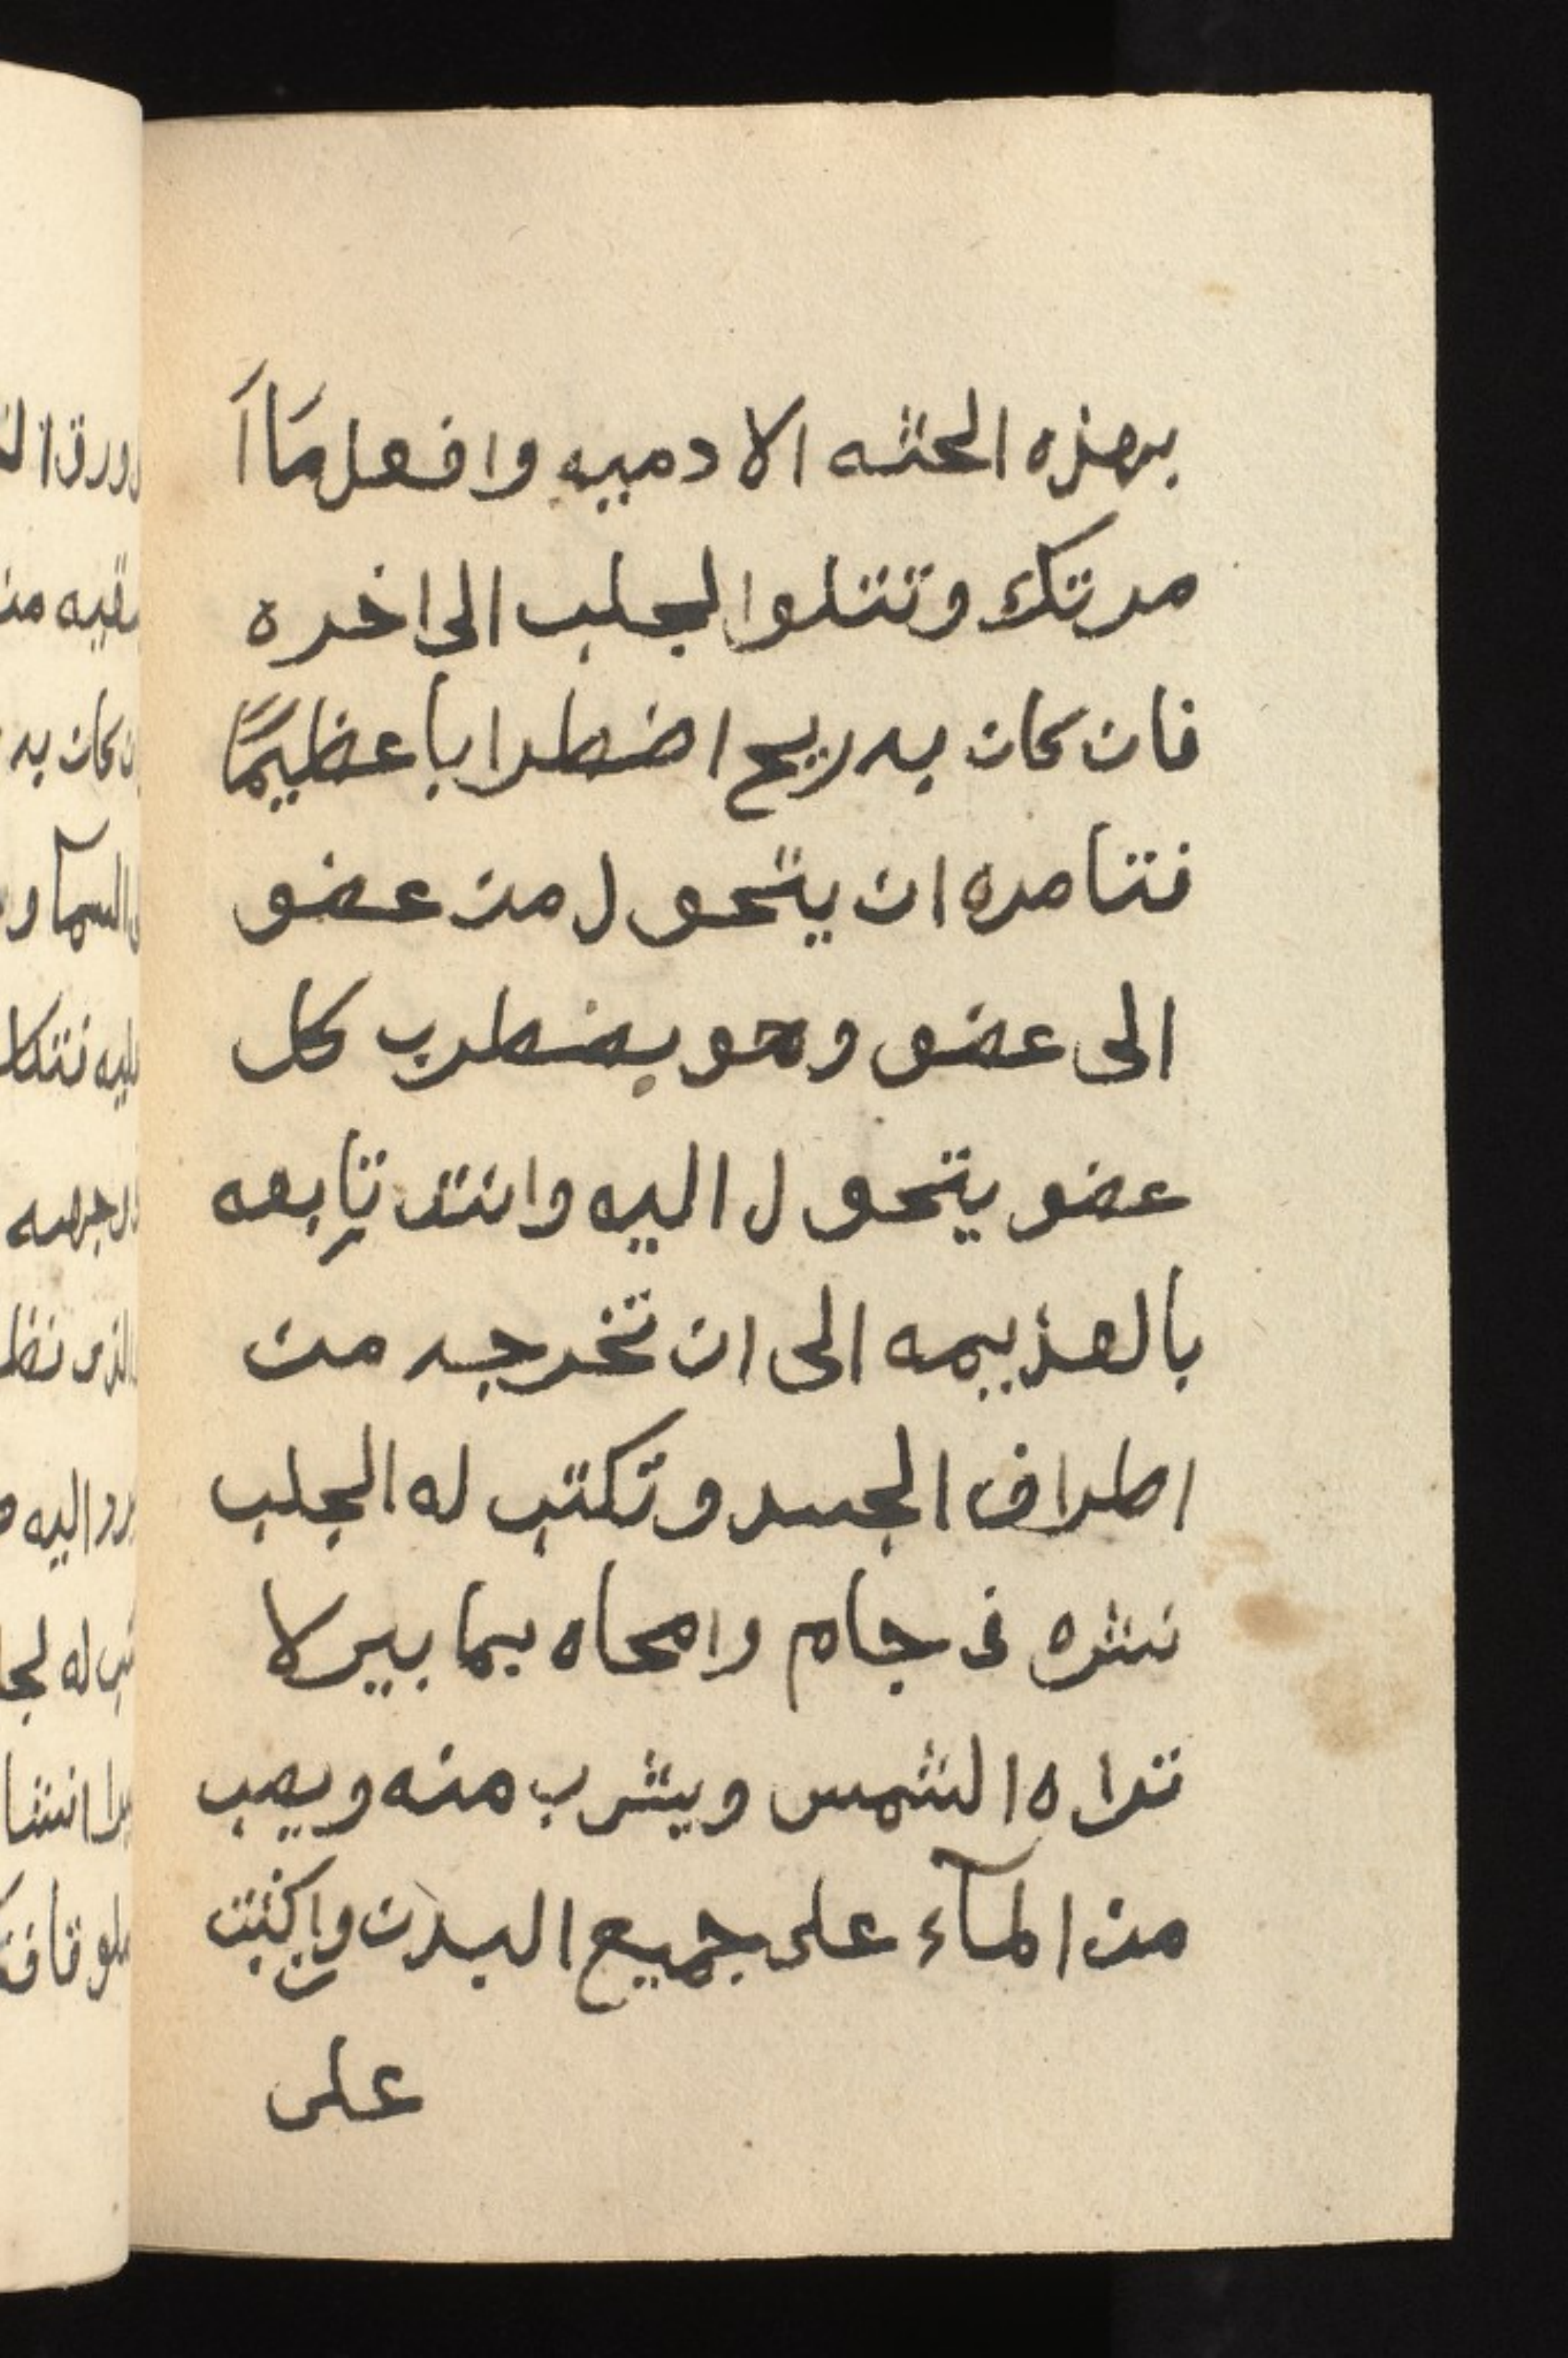 بهذه الحثه الادميه وافعل مَا اَ
مرتك وتتلوا لجلب الى اخره
فان كان به ريح اضطرابا عظيمًا
فتامره ان يتحول من عضو
الى عضو وهو يضطرب كل
عضو يتحول اليه وانت تتابعه
بالعزيمه الى ان تخرجه من
اطراف الجسد وتكتب له الجلب
نشره فى جام وامحاه بما بير لا
تراه الشمس ويشرب منه ويصب
من المآء على جميع البدن واكتب
على